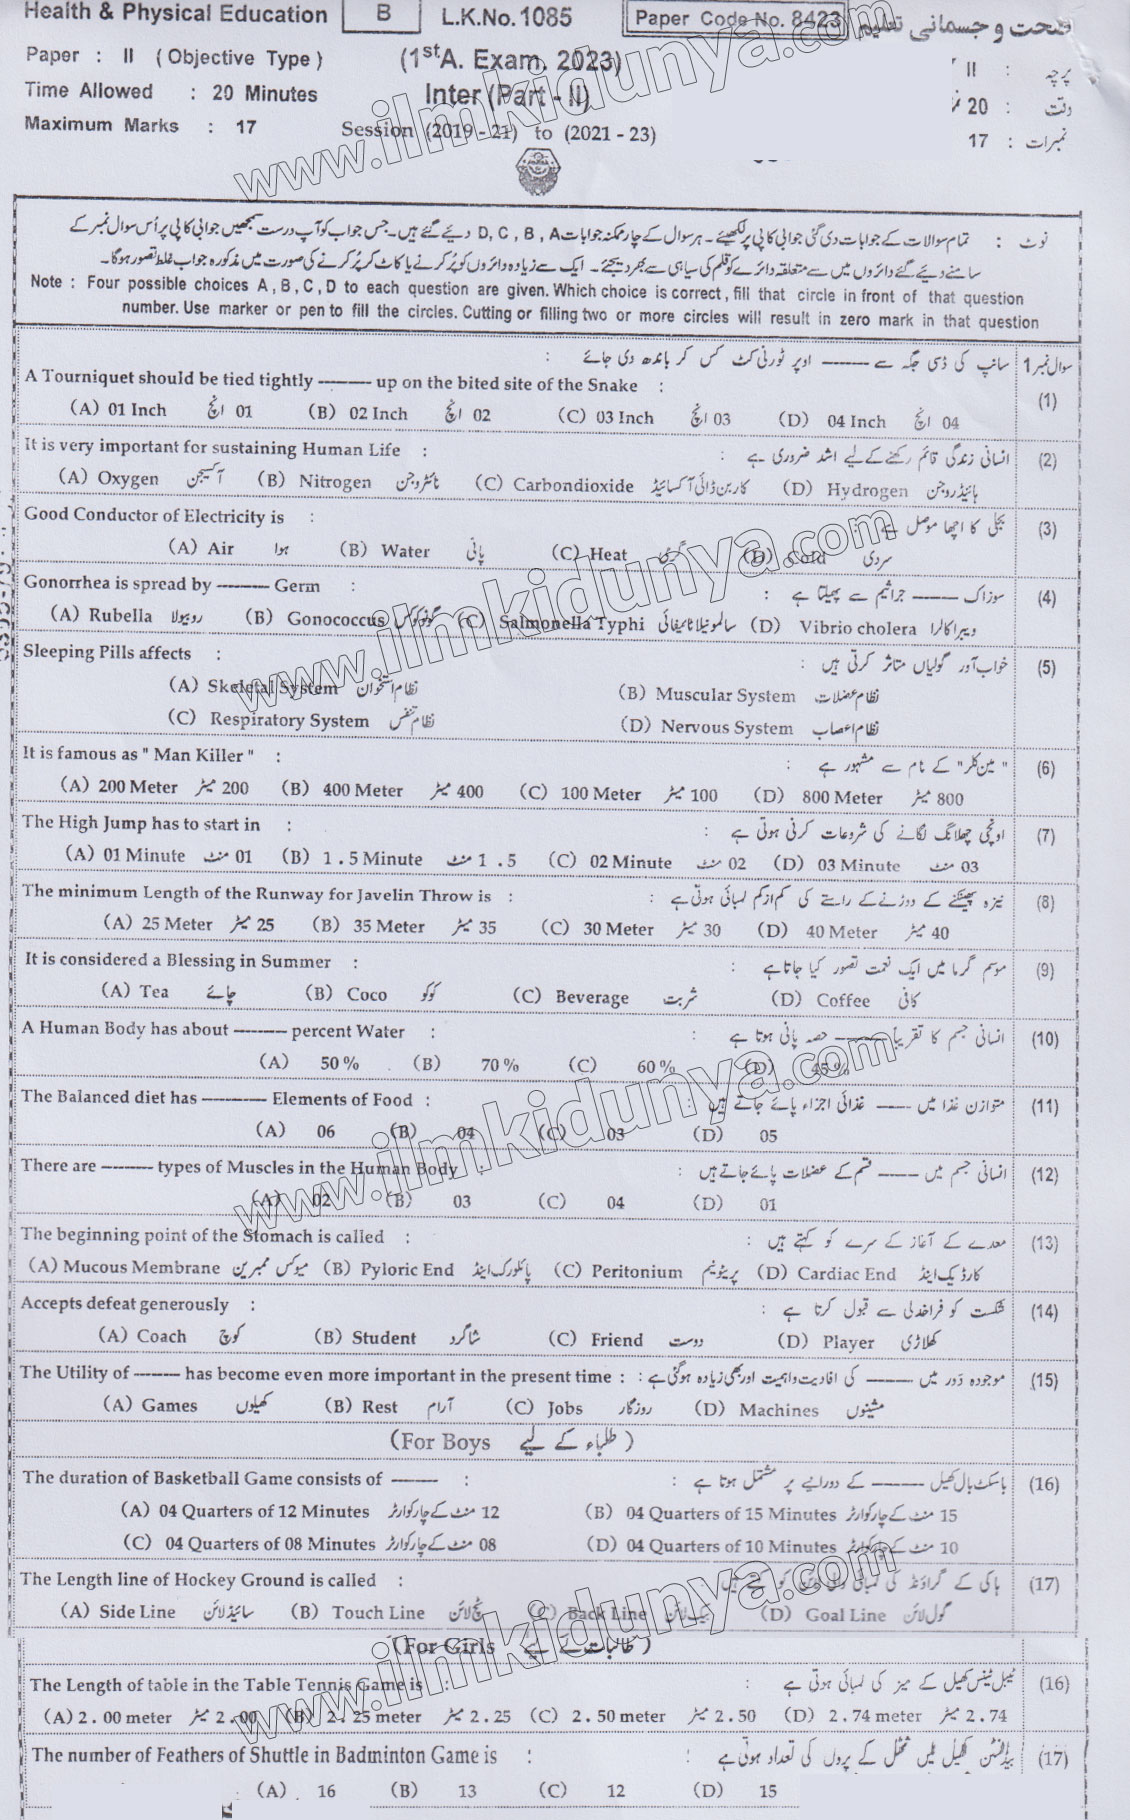 Health & Physical Education B L.K.No. 1085 Paper Code No. 8423 صحت و جسمانی تعلیم
Paper : II (Objective Type) (1stA. Exam, 2023) پرچہ : II
Time Allowed : 20 Minutes Inter (Part - II) وقت : 20
Maximum Marks : 17 Session (2019 - 21) to (2021 - 23) نمبرات : 17
نوٹ : تمام سوالات کے جوابات دی گئی جوابی کاپی پر لکھیئے۔ ہر سوال کے چار ممکنہ جوابات D, C, B, A دیئے گئے ہیں۔ جس جواب کو آپ درست سمجھیں جوابی کاپی پر اُس سوال نمبر کے
سامنے دیئے گئے دائروں میں سے متعلقہ دائرے کو قلم کی سیاہی سے بھر دیجئے۔ ایک سے زیادہ دائروں کو پُر کرنے یا کاٹ کر پُر کرنے کی صورت میں مذکورہ جواب غلط تصور ہوگا۔
Note : Four possible choices A , B , C , D to each question are given. Which choice is correct , fill that circle in front of that question
number. Use marker or pen to fill the circles. Cutting or filling two or more circles will result in zero mark in that question
سوال نمبر 1 سانپ کی ڈسی جگہ سے ——— اوپر ٹورنی کٹ کس کر باندھ دی جائے :
A Tourniquet should be tied tightly ——— up on the bited site of the Snake : (1)
(A) 01 Inch 01 انچ (B) 02 Inch 02 انچ (C) 03 Inch 03 انچ (D) 04 Inch 04 انچ
It is very important for sustaining Human Life : انسانی زندگی قائم رکھنے کے لیے اشد ضروری ہے : (2)
(A) Oxygen آکسیجن (B) Nitrogen نائٹروجن (C) Carbondioxide کاربن ڈائی آکسائیڈ (D) Hydrogen ہائیڈروجن
Good Conductor of Electricity is : بجلی کا اچھا موصل ہے : (3)
(A) Air ہوا (B) Water پانی (C) Heat گرمی (D) Cold سردی
Gonorrhea is spread by ——— Germ : سوزاک ——— جراثیم سے پھیلتا ہے : (4)
(A) Rubella روبیولا (B) Gonococcus گونوکوکس (C) Salmonella Typhi سالمونیلا ٹائیفائی (D) Vibrio cholera ویبرا کالرا
Sleeping Pills affects : خواب آور گولیاں متاثر کرتی ہیں : (5)
(A) Skeletal System نظام استخوان (B) Muscular System نظام عضلات
(C) Respiratory System نظام تنفس (D) Nervous System نظام اعصاب
It is famous as " Man Killer " : " مین کلر " کے نام سے مشہور ہے : (6)
(A) 200 Meter 200 میٹر (B) 400 Meter 400 میٹر (C) 100 Meter 100 میٹر (D) 800 Meter 800 میٹر
The High Jump has to start in : اونچی چھلانگ لگانے کی شروعات کرنی ہوتی ہے : (7)
(A) 01 Minute 01 منٹ (B) 1 . 5 Minute 1 . 5 منٹ (C) 02 Minute 02 منٹ (D) 03 Minute 03 منٹ
The minimum Length of the Runway for Javelin Throw is : نیزہ پھینکنے کے دوڑنے کے راستے کی کم از کم لمبائی ہوتی ہے : (8)
(A) 25 Meter 25 میٹر (B) 35 Meter 35 میٹر (C) 30 Meter 30 میٹر (D) 40 Meter 40 میٹر
It is considered a Blessing in Summer : موسم گرما میں ایک نعمت تصور کیا جاتا ہے : (9)
(A) Tea چائے (B) Coco کوکو (C) Beverage شربت (D) Coffee کافی
A Human Body has about ——— percent Water : انسانی جسم کا تقریباً ——— حصہ پانی ہوتا ہے : (10)
(A) 50 % (B) 70 % (C) 60 % (D) 45 %
The Balanced diet has ——— Elements of Food : متوازن غذا میں ——— غذائی اجزاء پائے جاتے ہیں : (11)
(A) 06 (B) 04 (C) 03 (D) 05
There are ——— types of Muscles in the Human Body : انسانی جسم میں ——— قسم کے عضلات پائے جاتے ہیں : (12)
(A) 02 (B) 03 (C) 04 (D) 01
The beginning point of the Stomach is called : معدے کے آغاز کے سرے کو کہتے ہیں : (13)
(A) Mucous Membrane میوکس ممبرین (B) Pyloric End پائلورک اینڈ (C) Peritonium پریٹونیم (D) Cardiac End کارڈیک اینڈ
Accepts defeat generously : شکست کو فراخدلی سے قبول کرتا ہے : (14)
(A) Coach کوچ (B) Student شاگرد (C) Friend دوست (D) Player کھلاڑی
The Utility of ——— has become even more important in the present time : موجودہ دَور میں ——— کی افادیت و اہمیت اور بھی زیادہ ہوگئی ہے : (15)
(A) Games کھیلوں (B) Rest آرام (C) Jobs روزگار (D) Machines مشینوں
(For Boys طلباء کے لیے )
The duration of Basketball Game consists of ——— : باسکٹ بال کھیل ——— کے دورانیے پر مشتمل ہوتا ہے : (16)
(A) 04 Quarters of 12 Minutes 12 منٹ کے چار کوارٹر (B) 04 Quarters of 15 Minutes 15 منٹ کے چار کوارٹر
(C) 04 Quarters of 08 Minutes 08 منٹ کے چار کوارٹر (D) 04 Quarters of 10 Minutes 10 منٹ کے چار کوارٹر
The Length line of Hockey Ground is called : ہاکی کے گراؤنڈ کی لمبائی والی لائن کو کہتے ہیں : (17)
(A) Side Line سائیڈ لائن (B) Touch Line ٹچ لائن (C) Back Line بیک لائن (D) Goal Line گول لائن
(For Girls طالبات کے لیے )
The Length of table in the Table Tennis Game is : ٹیبل ٹینس کھیل کے میز کی لمبائی ہوتی ہے : (16)
(A) 2 . 00 meter 2 . 00 میٹر (B) 2 . 25 meter 2 . 25 میٹر (C) 2 . 50 meter 2 . 50 میٹر (D) 2 . 74 meter 2 . 74 میٹر
The number of Feathers of Shuttle in Badminton Game is : بیڈمنٹن کھیل میں شٹل کے پروں کی تعداد ہوتی ہے : (17)
(A) 16 (B) 13 (C) 12 (D) 15
www.ilmkidunya.com
www.ilmkidunya.com
www.ilmkidunya.com
www.ilmkidunya.com
www.ilmkidunya.com
www.ilmkidunya.com